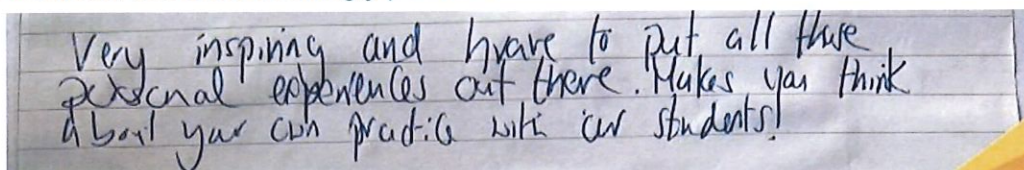 Very inspiring and brave to put all those
personal experiences out there. Makes you think
about your own practice with our students!